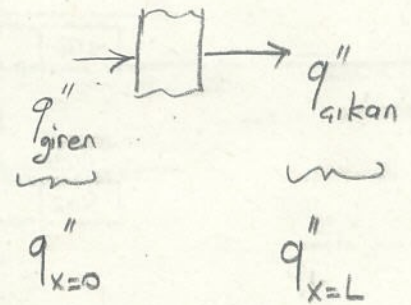 q"giren q"çıkan
q"x=0 q"x=L